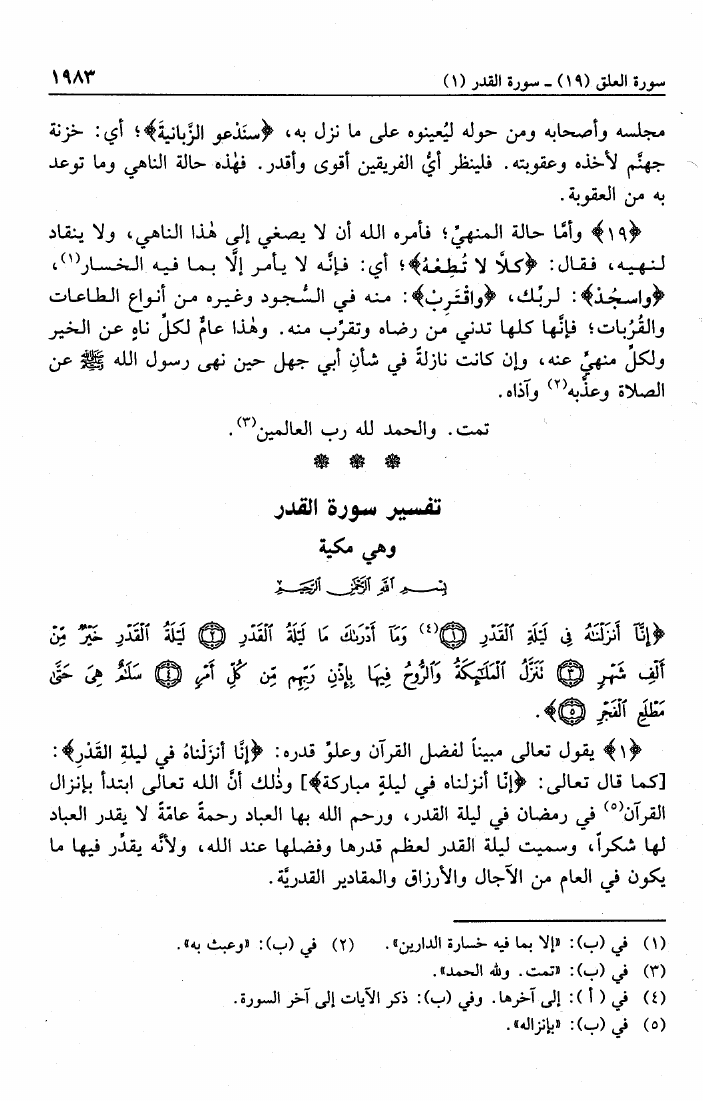 سورة العلق (١٩) - سورة القدر (١)
١٩٨٣
مجلسه وأصحابه ومن حوله ليُعينوه على ما نزل به، ﴿سنَدْعو الزَّبانيةَ﴾؛ أي: خزنة
جهنَّم لأخذه وعقوبته. فلينظر أيُّ الفريقين أقوى وأقدر. فهٰذه حالة الناهي وما توعد
به من العقوبة.
﴿١٩﴾ وأمَّا حالة المنهيِّ؛ فأمره الله أن لا يصغي إلى هٰذا الناهي، ولا ينقاد
لنهيه، فقال: ﴿كلَّا لا تُطِعْهُ﴾؛ أي: فإنَّه لا يأمر إلَّا بما فيه الخسار(١)،
﴿واسجُدْ﴾: لربِّك، ﴿واقْتَرِبْ﴾: منه في السُّجود وغيره من أنواع الطاعات
والقُرُبات؛ فإنَّها كلها تدني من رضاه وتقرِّب منه. وهٰذا عامٌّ لكلِّ ناهٍ عن الخير
ولكلِّ منهيٍّ عنه، وإن كانت نازلةً في شأنِ أبي جهل حين نهى رسول الله ﷺ عن
الصلاة وعذَّبه(٢) وآذاه.
تمت. والحمد لله رب العالمين(٣).
تفسير سورة القدر
وهي مكية
بِسْمِ اللَّهِ الرَّحْمَٰنِ الرَّحِيمِ
﴿إِنَّآ أَنزَلْنَٰهُ فِى لَيْلَةِ ٱلْقَدْرِ ١(٤) وَمَآ أَدْرَىٰكَ مَا لَيْلَةُ ٱلْقَدْرِ ٢ لَيْلَةُ ٱلْقَدْرِ خَيْرٌ مِّنْ
أَلْفِ شَهْرٍ ٣ نَنَزَّلُ ٱلْمَلَٰٓئِكَةُ وَٱلرُّوحُ فِيهَا بِإِذْنِ رَبِّهِم مِّن كُلِّ أَمْرٍ ٤ سَلَٰمٌ هِىَ حَتَّىٰ
مَطْلَعِ ٱلْفَجْرِ ٥﴾.
﴿١﴾ يقول تعالى مبيناً لفضل القرآن وعلوِّ قدره: ﴿إنَّا أنزَلْناهُ في ليلةِ القَدْرِ﴾:
[كما قال تعالى: ﴿إنّا أنزلناه في ليلةٍ مباركة﴾] وذلك أنَّ الله تعالى ابتدأ بإنزال
القرآن(٥) في رمضان في ليلة القدر، ورحم الله بها العباد رحمةً عامّةً لا يقدر العباد
لها شكراً، وسميت ليلة القدر لعظم قدرها وفضلها عند الله، ولأنَّه يقدِّر فيها ما
يكون في العام من الآجال والأرزاق والمقادير القدريَّة.
(١) في (ب): «إلا بما فيه خسارة الدارين». (٢) في (ب): «وعبث به».
(٣) في (ب): «تمت. ولله الحمد».
(٤) في (أ): إلى آخرها. وفي (ب): ذكر الآيات إلى آخر السورة.
(٥) في (ب): «بإنزاله».